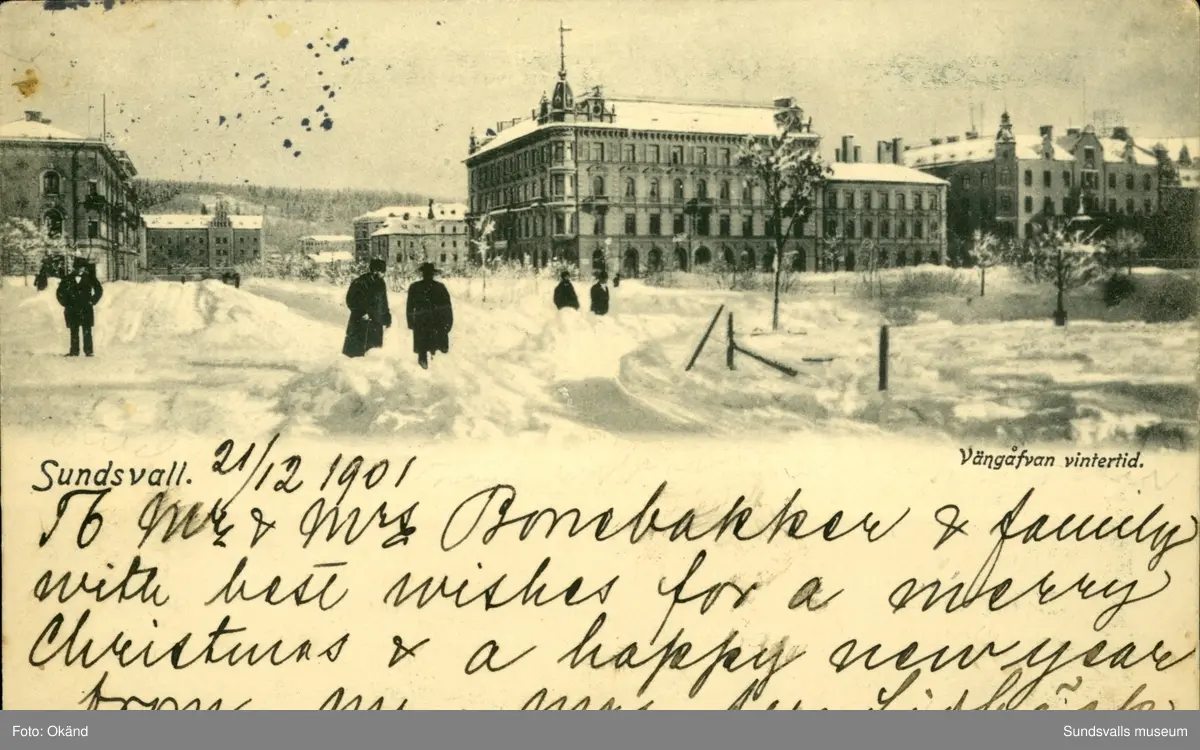 Sundsvall. 21/12 1901
Vängåfvan vintertid.
To Mr & Mrs Bonebakker & family
with best wishes for a merry
Christmas & a happy new year
from Mr Mrs
Foto: Okänd
Sundsvalls museum